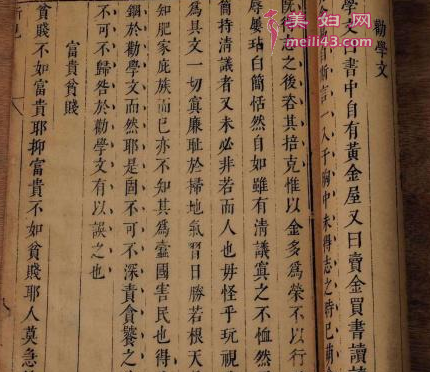 美妇网
meili43.com
勸學文
學文曰書中自有黃金屋又曰賣金買書讀
斯言一入于胸中未得志之時已萌
之後恣其掊克惟以金多為榮不以行
辱屢玷白簡恬然自如雖有清議寘之不恤然
簡持清議者又未必非若而人也毋怪乎玩視
為具文一切寘廉耻於掃地氣習日勝若根天
知肥家庇族而已亦不知其為蠹國害民也得
錮於勸學文而然耶是固不可不深責貪饕之
不可不歸咎於勸學文有以誤之也
富貴貧賤
貧賤不如富貴耶抑富貴不如貧賤耶人莫急